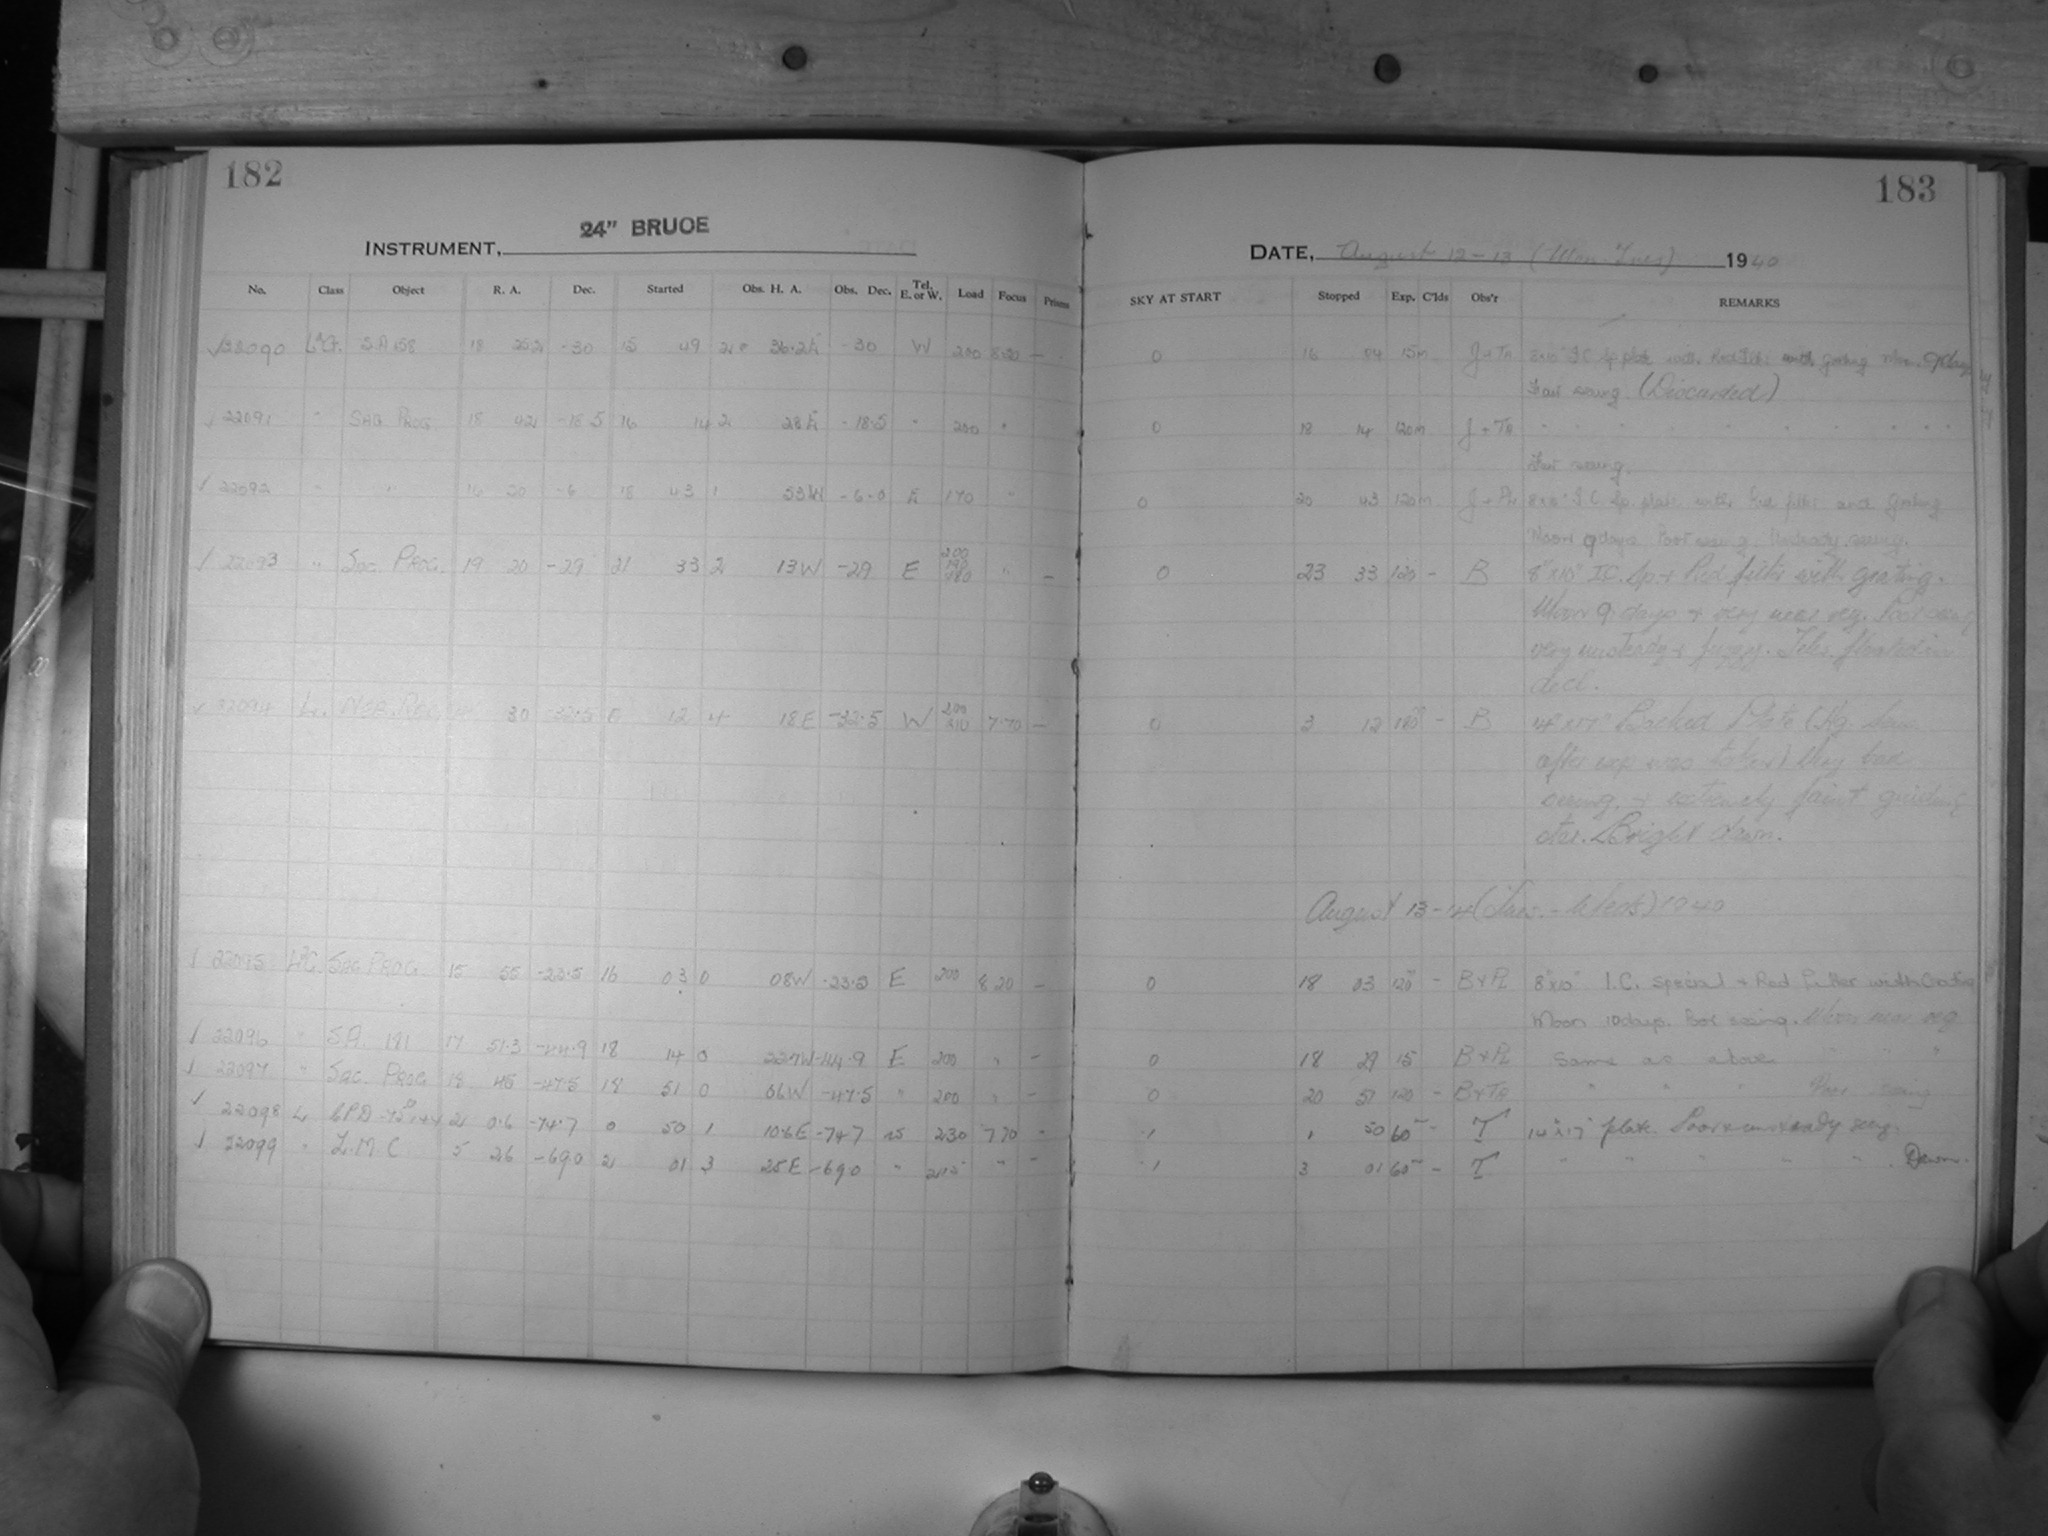 182
24" BRUOE
INSTRUMENT,
No. Class Object R. A. Dec. Started Obs. H. A. Obs. Dec. Tel. E. or W. Load Focus Prisms
S.A 158 18 -30 15 49 36.2E -30 W 200 8.20 —
22091 " SAG PROG. 18 02 -18.5 16 14 2 28E -18.5 " 200 "
22092 " " 16 20 -6 18 43 1 53W -6.0 E 170 "
22093 " Sag. PROG. 19 20 -29 21 33 2 13W -29 E 200 190 180 " —
22094 L. 30 -32.5 0 12 4 18E -32.5 W 200 210 7.70 —
22095 SAG PROG. 15 55 -23.5 16 03 0 08W -23.5 E 200 8.20 —
22096 " S.A. 181 17 51.3 -44.9 18 14 0 22.7W -44.9 E 200 " —
22097 " Sag. PROG 18 45 -47.5 18 51 0 06W -47.5 " 200 " —
22098 L 0.6 -74.7 0 50 1 10.6E -74.7 W 230 7.70 —
22099 " L.M.C. 5 26 -69.0 2 01 3 25E -69.0 " " —
183
DATE, August 12-13 (Mon-Tues) 1940
SKY AT START Stopped Exp. C'lds Obs'r REMARKS
0 16 04 15m J + TA
Fair seeing (Discarded)
0 18 14 120m J + TA
Fair seeing.
0 20 43 120m 8x10" I C Sp. plate with Red filter and Grating
Moon 9 days Poor seeing. Unsteady seeing.
0 23 33 120 - B 8"x10" I.C. Sp + Red filter with grating.
Moon 9 days + very near reg. Poor seeing
very unsteady + fuzzy. Tele. floated in
decl.
0 3 12 180 - B 14"x17" Backed Plate (Hg.
after exp was taken) Very bad
seeing. + extremely faint guiding
star. Bright dawn.
August 13-14 (Tues. - Weds) 1940
0 18 03 120 - B+PL 8"x10" I.C. special + Red Filter with Grating
Moon 10 days. Poor seeing. Moon near reg
0 18 29 15 B+PL Same as above " " "
0 20 51 120 - B+TA " " " Poor seeing
-1 1 50 60 - T 14"x17" plate. Poor + unsteady seeing.
-1 3 01 60 - T " " " " " . Dawn.